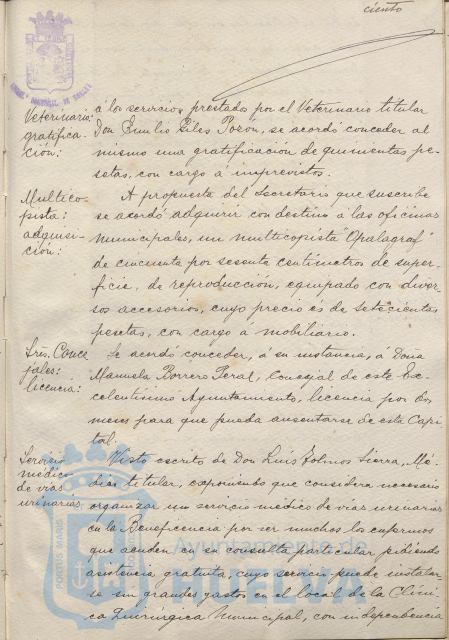 ciento
Veterinario:
gratifica-
ción:
á los servicios prestados por el Veterinario titular
Don Emilio Giles Pozón, se acordó conceder al
mismo una gratificación de quinientas pe-
setas, con cargo á imprevistos.
Multico-
pista:
adquisi-
ción:
A propuesta del Secretario que suscribe
se acordó adquirir con destino á las oficinas
municipales, un multicopista "Opalagraf"
de cincuenta por sesenta centímetros de super-
ficie, de reproducción, equipado con diver-
sos accesorios, cuyo precio es de setecientas
pesetas, con cargo á mobiliario.
Srēs. Conce
jales:
licencia:
Se acordó conceder, á su instancia, á Doña
Manuela Borrero Peral, Concejal de este Ex-
celentísimo Ayuntamiento, licencia por dos
meses para que pueda ausentarse de esta Capi-
tal.
Servicio
médico
de vías
urinarias
Visto escrito de Don Luis Tolmos Sierra, Mé-
dico titular, exponiendo que considera necesario
organizar un servicio médico de vías urinarias
en la Beneficencia por ser muchos los enfermos
que acuden en su consulta particular pidiendo
asistencia gratuita, cuyo servicio puede instalar-
se sin grandes gastos en el local de la Clíni-
ca Quirúrgica Municipal, con independencia
Ayuntamiento de
HUELVA
PORTUS MARIS